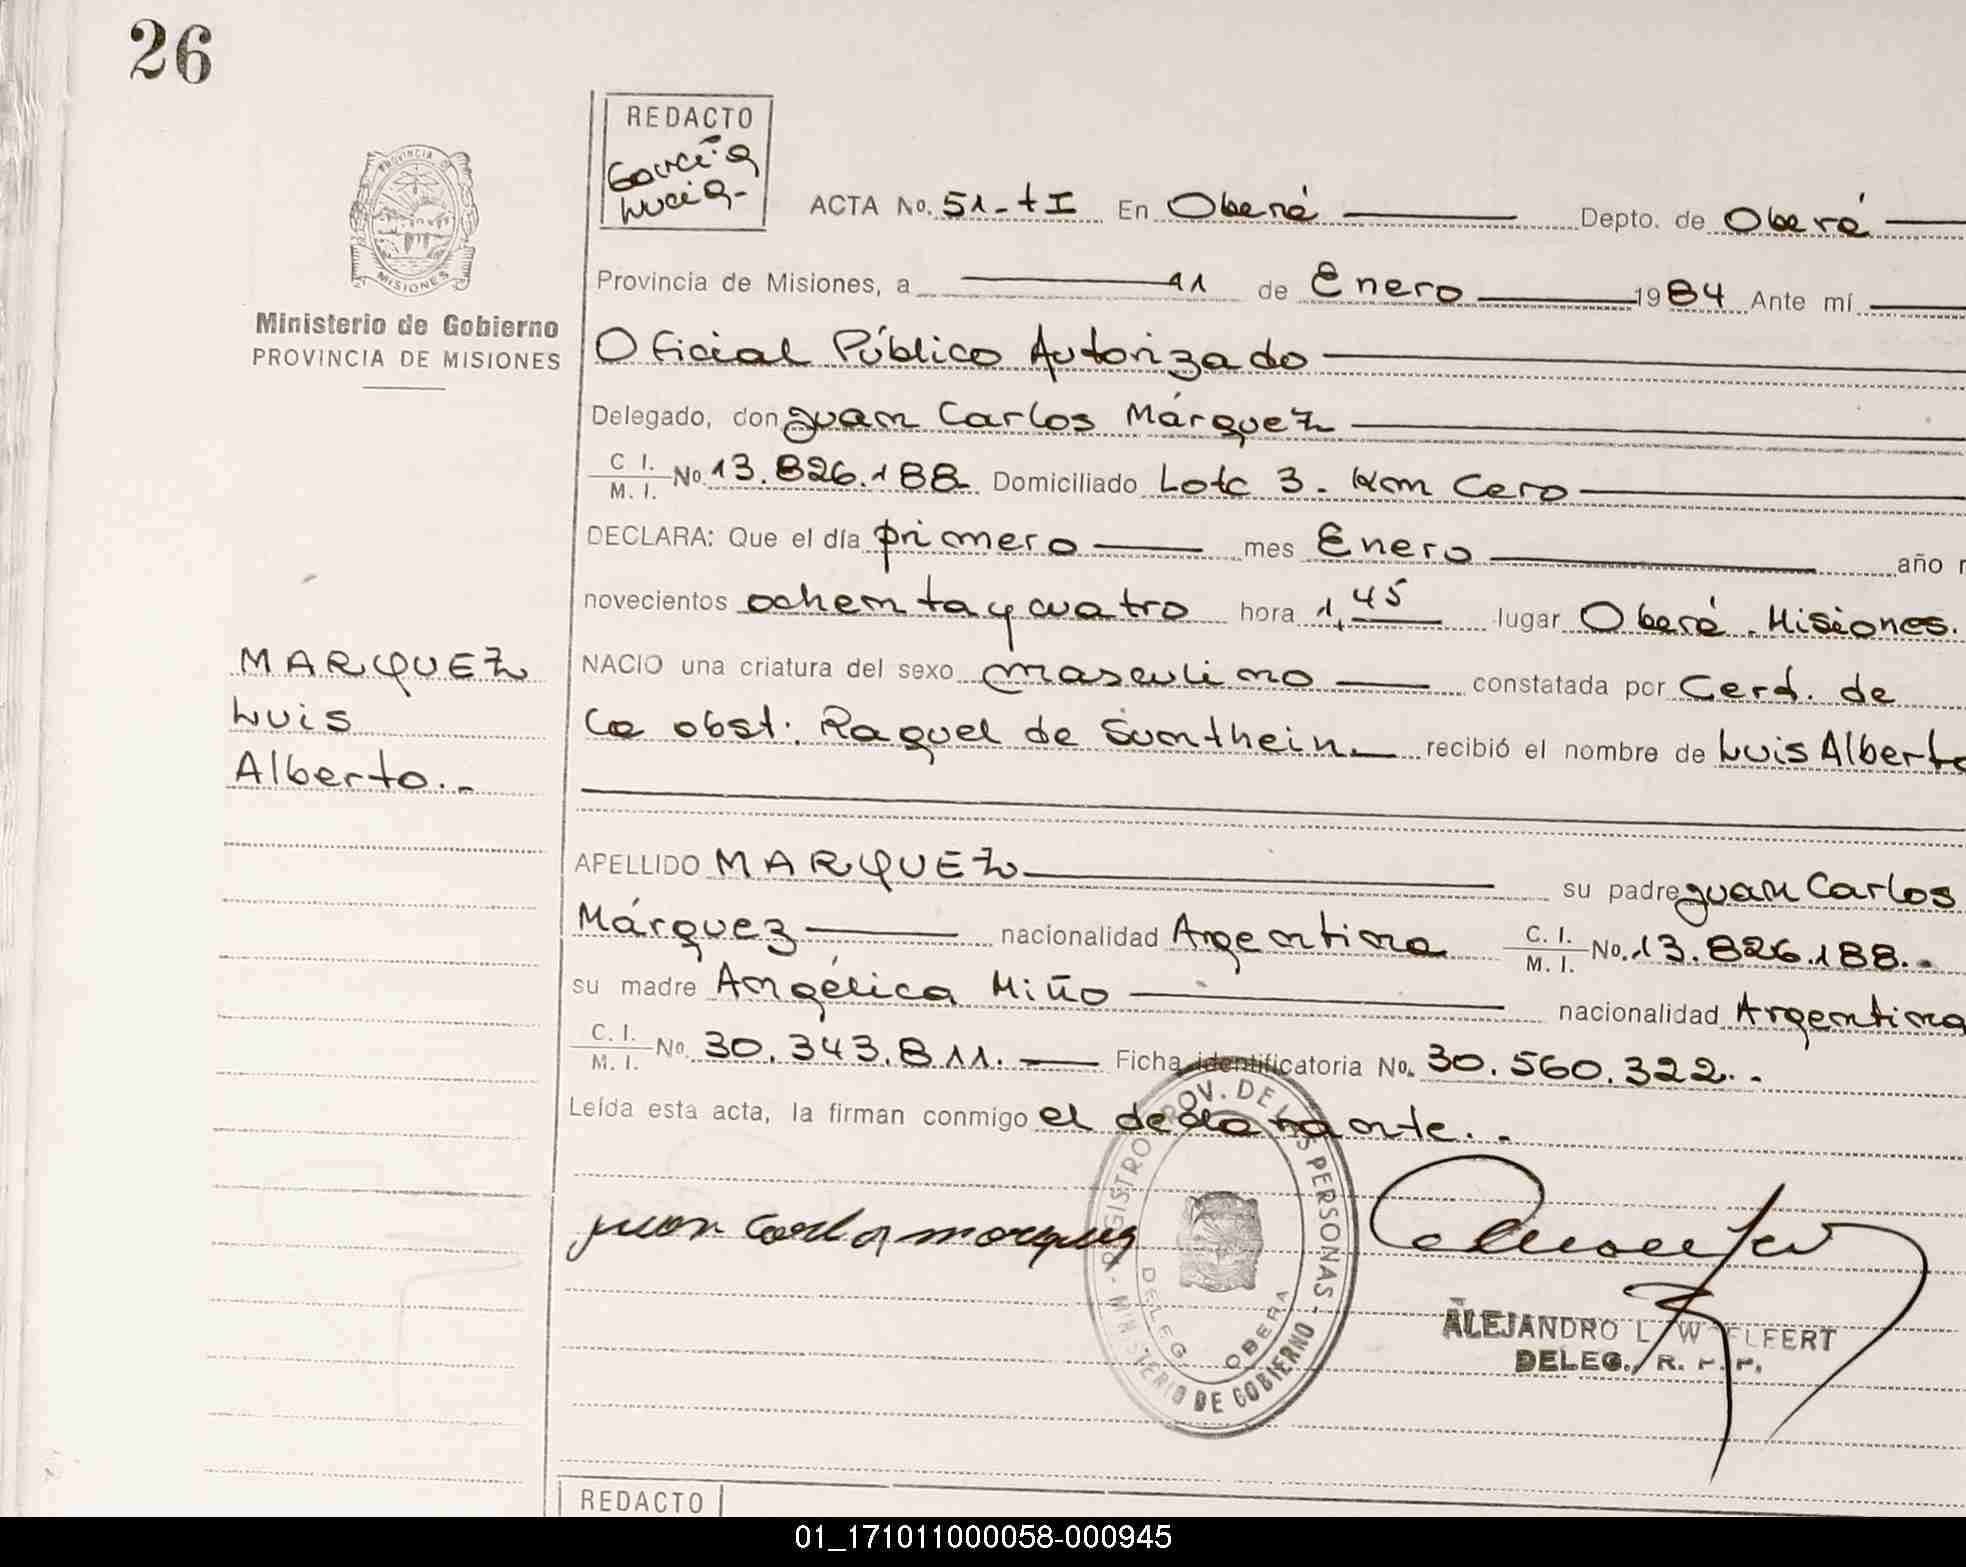 26
REDACTO
García
Lucía-
PROVINCIA DE
MISIONES
Ministerio de Gobierno
PROVINCIA DE MISIONES
ACTA No. 51-tI En Oberá Depto. de Oberá
Provincia de Misiones, a 11 de Enero 1984 Ante mí
Oficial Público Autorizado
Delegado, don Juan Carlos Márquez
C I. M. I. No. 13.826.188 Domiciliado Lote 3. Km Cero
DECLARA: Que el día primero mes Enero año
novecientos ochenta y cuatro hora 1,45 lugar Oberá. Misiones.
NACIO una criatura del sexo masculino constatada por Cerd. de
la obst: Raquel de recibió el nombre de Luis Alberto
MARQUEZ
Luis
Alberto.-
APELLIDO MARQUEZ su padre Juan Carlos
Márquez nacionalidad Argentina C. I. M. I. No. 13.826.188.-
su madre Angélica Miño nacionalidad Argentina
C. I. M. I. No. 30.343.811. Ficha identificatoria No. 30.560.322.-
Leída esta acta, la firman conmigo el declarante.-
Juan Carlos Marquez
REGISTRO PROV. DE LAS PERSONAS - MINISTERIO DE GOBIERNO -
DELEG. OBERA
ALEJANDRO L.
DELEG. R. P. P.
REDACTO
01_171011000058-000945